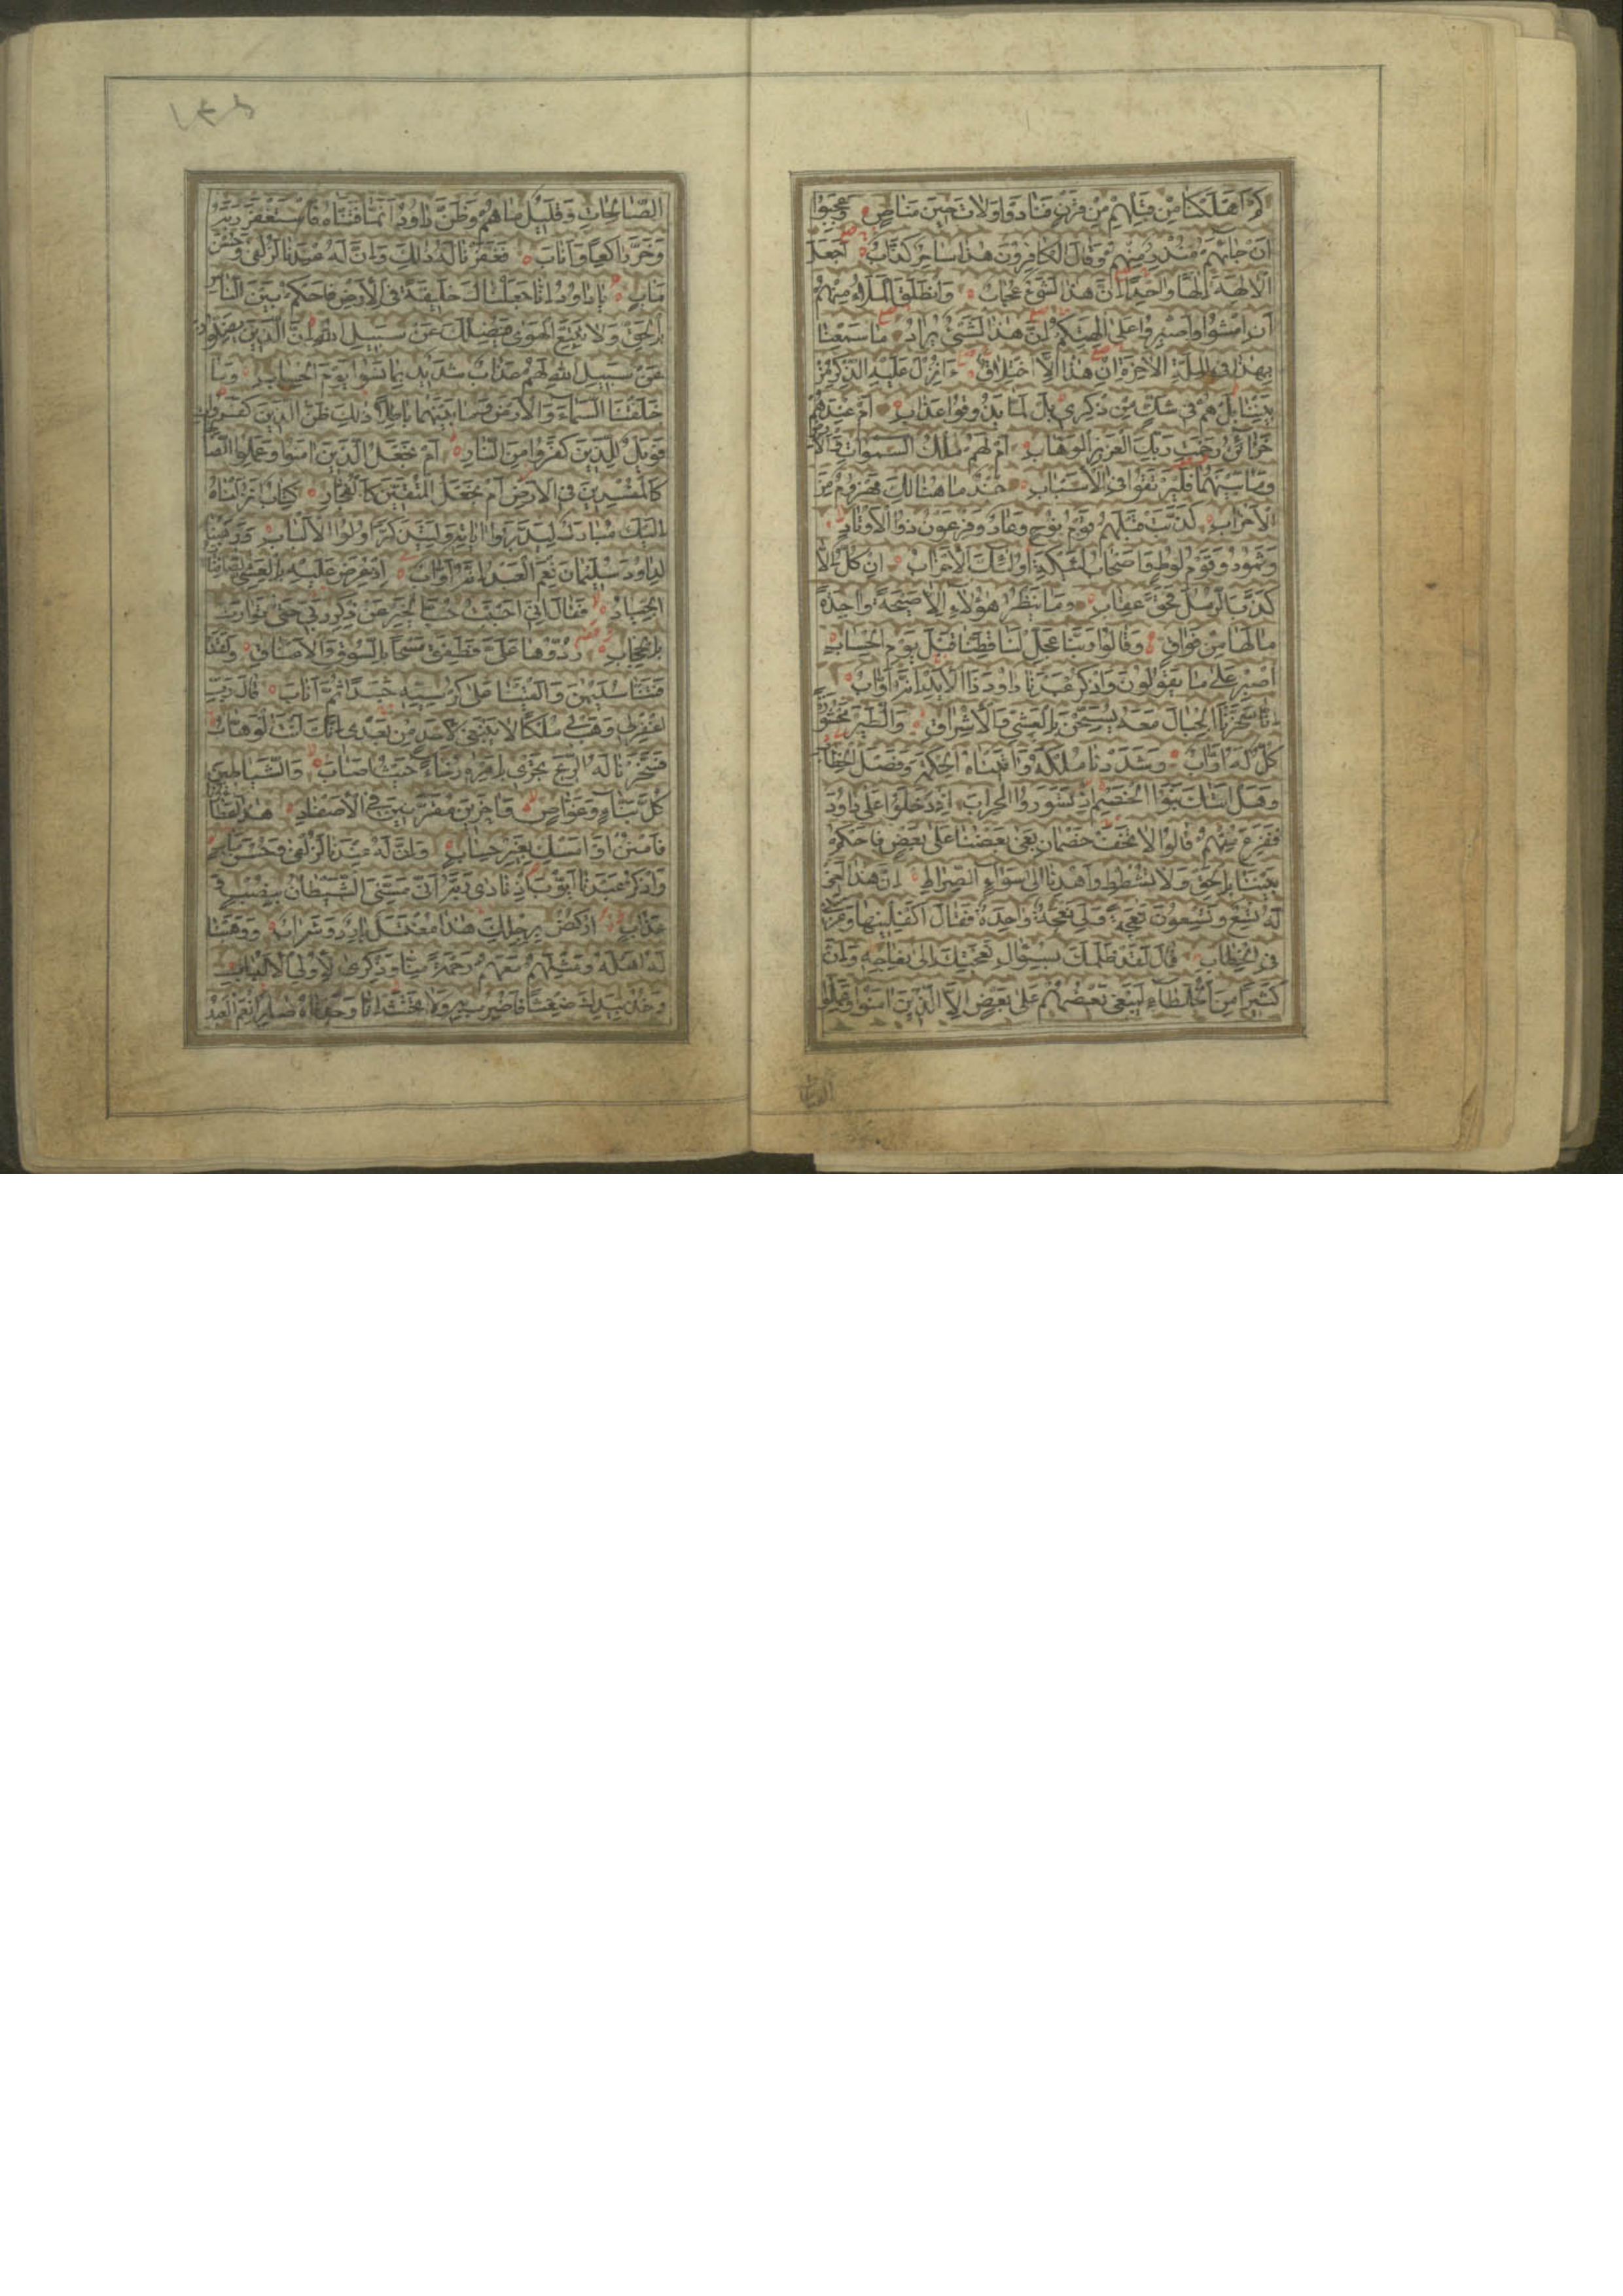 كم اهلكنا من قبلهم من قرن فنادوا ولات حين مناص وعجبوا
ان جاءهم منذر منهم وقال الكافرون هذا ساحر كذاب اجعل
الالهة الها واحدا ان هذا لشئ عجاب وانطلق الملاء منهم
ان امشوا واصبروا على الهتكم ان هذا لشئ يراد ما سمعنا
بهذا في الملة الاخرة ان هذا الا اختلاق ءانزل عليه الذكر من
بيننا بل هم في شك من ذكرى بل لما يذوقوا عذاب ام عندهم
خزائن رحمت ربك العزيز الوهاب ام لهم ملك السموات والار
وما بينهما فليرتقوا في الاسباب جند ما هنالك مهزوم من
الاحزاب كذبت قبلهم قوم نوح وعاد وفرعون ذوا الاوتاد
وثمود وقوم لوط واصحاب لئيكة اولئك الاحزاب ان كل الا
كذب الرسل فحق عقاب وما ينظر هؤلاء الا صيحة واحدة
مالها من فواق وقالوا ربنا عجل لنا قطنا قبل يوم الحساب
اصبر على ما يقولون واذكر عبدنا داود ذا الايد انه اواب
انا سخرنا الجبال معه يسبحن بالعشي والاشراق والطير محشورة
كل له اواب وشددنا ملكه واتيناه الحكمة وفصل الخطاب
وهل اتيك نبؤا الخصم اذ تسوروا المحراب اذ دخلوا على داود
ففزع منهم قالوا لا تخف خصمان بغى بعضنا على بعض فاحكم
بيننا بالحق ولا تشطط واهدنا الى سواء الصراط ان هذا اخى
له تسع وتسعون نعجة ولي نعجة واحدة فقال اكفلنيها وعزني
في الخطاب قال لقد ظلمك بسؤال نعجتك الى نعاجه وان
كثيرا من الخلطاء ليبغي بعضهم على بعض الا الذين امنوا وعملوا
الصالحات
١٣٨
الصالحات وقليل ما هم وظن داود انما فتناه فاستغفر ربه
وخر راكعا واناب فغفرنا له ذلك وان له عندنا لزلفى وحسن
ماب يا داود انا جعلناك خليفة في الارض فاحكم بين الناس
بالحق ولا تتبع الهوى فيضلك عن سبيل الله ان الذين يضلون
عن سبيل الله لهم عذاب شديد بما نسوا يوم الحساب وما
خلقنا السماء والارض وما بينهما باطلا ذلك ظن الذين كفروا
فويل للذين كفروا من النار ام نجعل الذين امنوا وعملوا الصا
كالمفسدين في الارض ام نجعل المتقين كالفجار كتاب انزلناه
اليك مبارك ليدبروا اياته وليتذكر اولوا الالباب ووهبنا
لداود سليمان نعم العبد انه اواب اذ عرض عليه بالعشي الصافنات
الجياد فقال اني احببت حب الخير عن ذكر ربي حتى توارت
بالحجاب ردوها على فطفق مسحا بالسوق والاعناق ولقد
فتنا سليمن والقينا على كرسيه جسدا ثم اناب قال رب
اغفر لي وهب لي ملكا لا ينبغي لاحد من بعدي انك انت الوهاب
فسخرنا له الريح تجري بامره رخاء حيث اصاب والشياطين
كل بناء وغواص واخرين مقرنين في الاصفاد هذا عطاؤنا
فامنن او امسك بغير حساب وان له عندنا لزلفى وحسن ماب
واذكر عبدنا ايوب اذ نادى ربه اني مسني الشيطان بنصب و
عذاب اركض برجلك هذا مغتسل بارد وشراب ووهبنا
له اهله ومثلهم معهم رحمة منا وذكرى لاولي الالباب
وخذ بيدك ضغثا فاضرب به ولا تحنث انا وجدناه صابرا نعم العبد